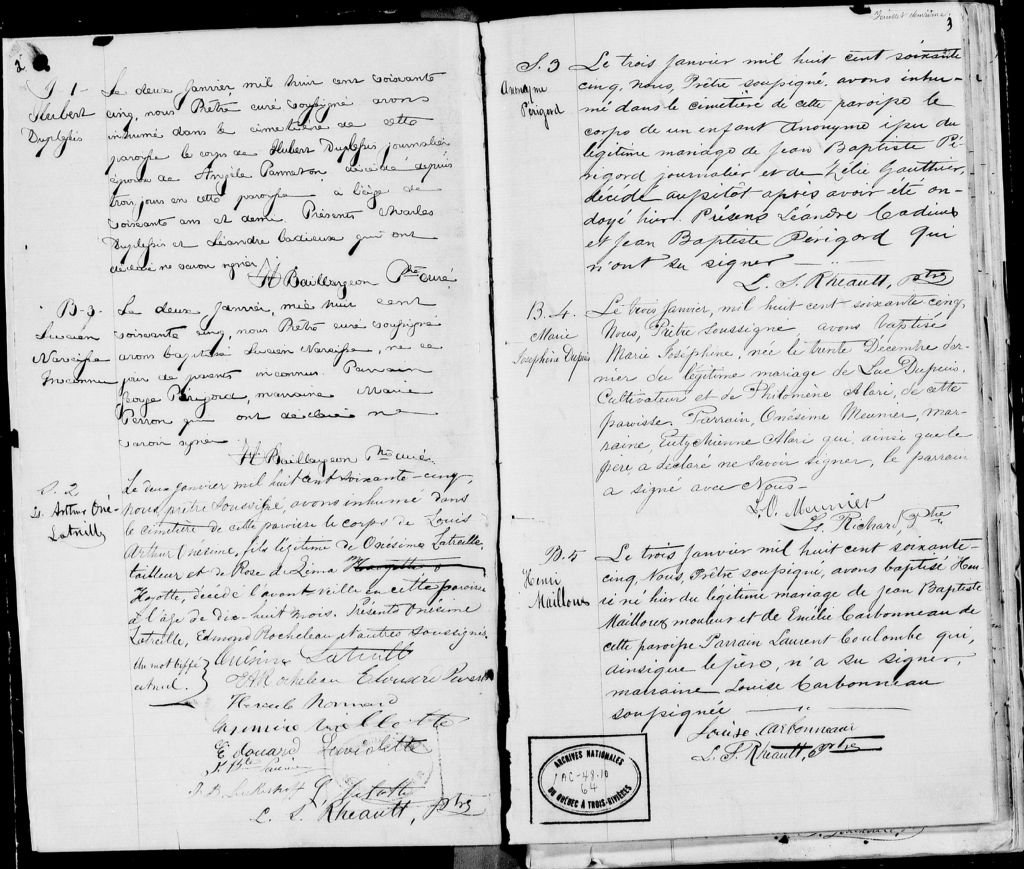 2
S. 1
Hubert
Duplessis
Le deux Janvier mil huit cent soixante
cinq, nous Prêtre curé soussigné avons
inhumé dans le cimetière de cette
paroisse le corps de Hubert Duplessis journalier
époux de Angèle Panneton décédé depuis
trois jours en cette paroisse à l'âge de
soixante ans et demi Présents Charles
Duplessis et Léandre Cadieux qui ont
déclaré ne savoir signer
Baillargeon Ptre curé
B-3.
Lucien
Narcisse
Inconnu
Le deux Janvier, mil huit cent
soixante cinq, nous Prêtre curé soussigné
avons baptisé Lucien Narcisse, né ce
jour de parents inconnus. Parrain
Périgord, marraine Marie
Perron qui ont déclaré ne
savoir signer
Baillargeon Ptre curé
S. 2
Ls. Arthur Oné-
Latreille
Le deux janvier mil huit cent soixante-cinq,
nous, prêtre soussigné, avons inhumé dans
le cimetière de cette paroisse le corps de Louis
Arthur Onésime, fils légitime de Onésime Latreille,
tailleur et de Rose de Lima
Hayotte, décédé l'avant veille en cette paroisse
à l'âge de dix-huit mois. Présents Onésime
Latreille, Edmond Rocheleau et autres soussignés
Un mot biffé
est nul.
Onésime Latreille
Rocheleau
Normand
Edouard
C. S. Rhéault, ptre
Feuillet deuxième
3
S. 3
Anonyme
Périgord
Le trois janvier mil huit cent soixante
cinq, Nous, Prêtre soussigné, avons inhu-
mé dans le cimetière de cette paroisse le
corps de un enfant Anonyme issu du
légitime mariage de Jean Baptiste Pé-
rigord journalier et de Zélie Gauthier,
décédé aussitôt après avoir été on-
doyé hier. Présens Léandre Cadieux
et Jean Baptiste Périgord qui
n'ont su signer
L. S. Rhéault, ptre
B. 4.
Marie
Josephine Dupuis
Le trois Janvier, mil huit cent soixante cinq,
Nous, Prêtre soussigné, avons baptisé
Marie Joséphine, née le trente Décembre der-
nier du légitime mariage de Luc Dupuis,
Cultivateur et de Philomène Alari, de cette
paroisse. Parrain, Onésime Meunier, mar-
raine, Eutychienne Alari qui, ainsi que le
père a déclaré ne savoir signer, le parrain
a signé avec Nous
L. O. Meunier
L. Richard, Ptre
B. 5
Henri
Mailloux
Le trois Janvier mil huit cent soixante-
cinq, Nous, Prêtre soussigné, avons baptisé Hen-
ri né hier du légitime mariage de Jean Baptiste
Mailloux mouleur et de Emélie Carbonneau de
cette paroisse Parrain Laurent Coulombe qui,
ainsi que le père, n'a su signer,
marraine Louise Carbonneau
soussignée
Louise Carbonneau
L. S. Rhéault, ptre
ARCHIVES NATIONALES
AC-48-10
64
DU QUÉBEC À TROIS-RIVIÈRES